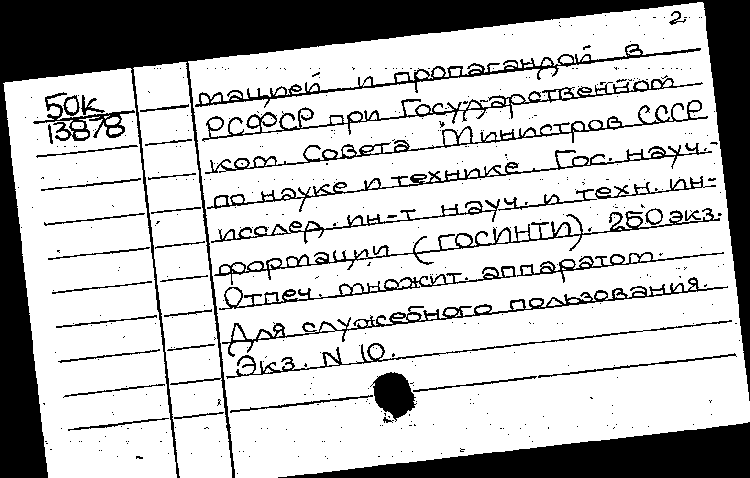 2
50к
13878
мацией и пропагандой в
РСФСР при Государственном
ком. Совета Министров СССР
по науке и технике. Гос. науч.-
исслед. ин-т науч. и техн. ин-
формации (ГОСИНТИ). 250 экз.
Отпеч. множит. аппаратом.
Для служебного пользования.
Экз. N 10.